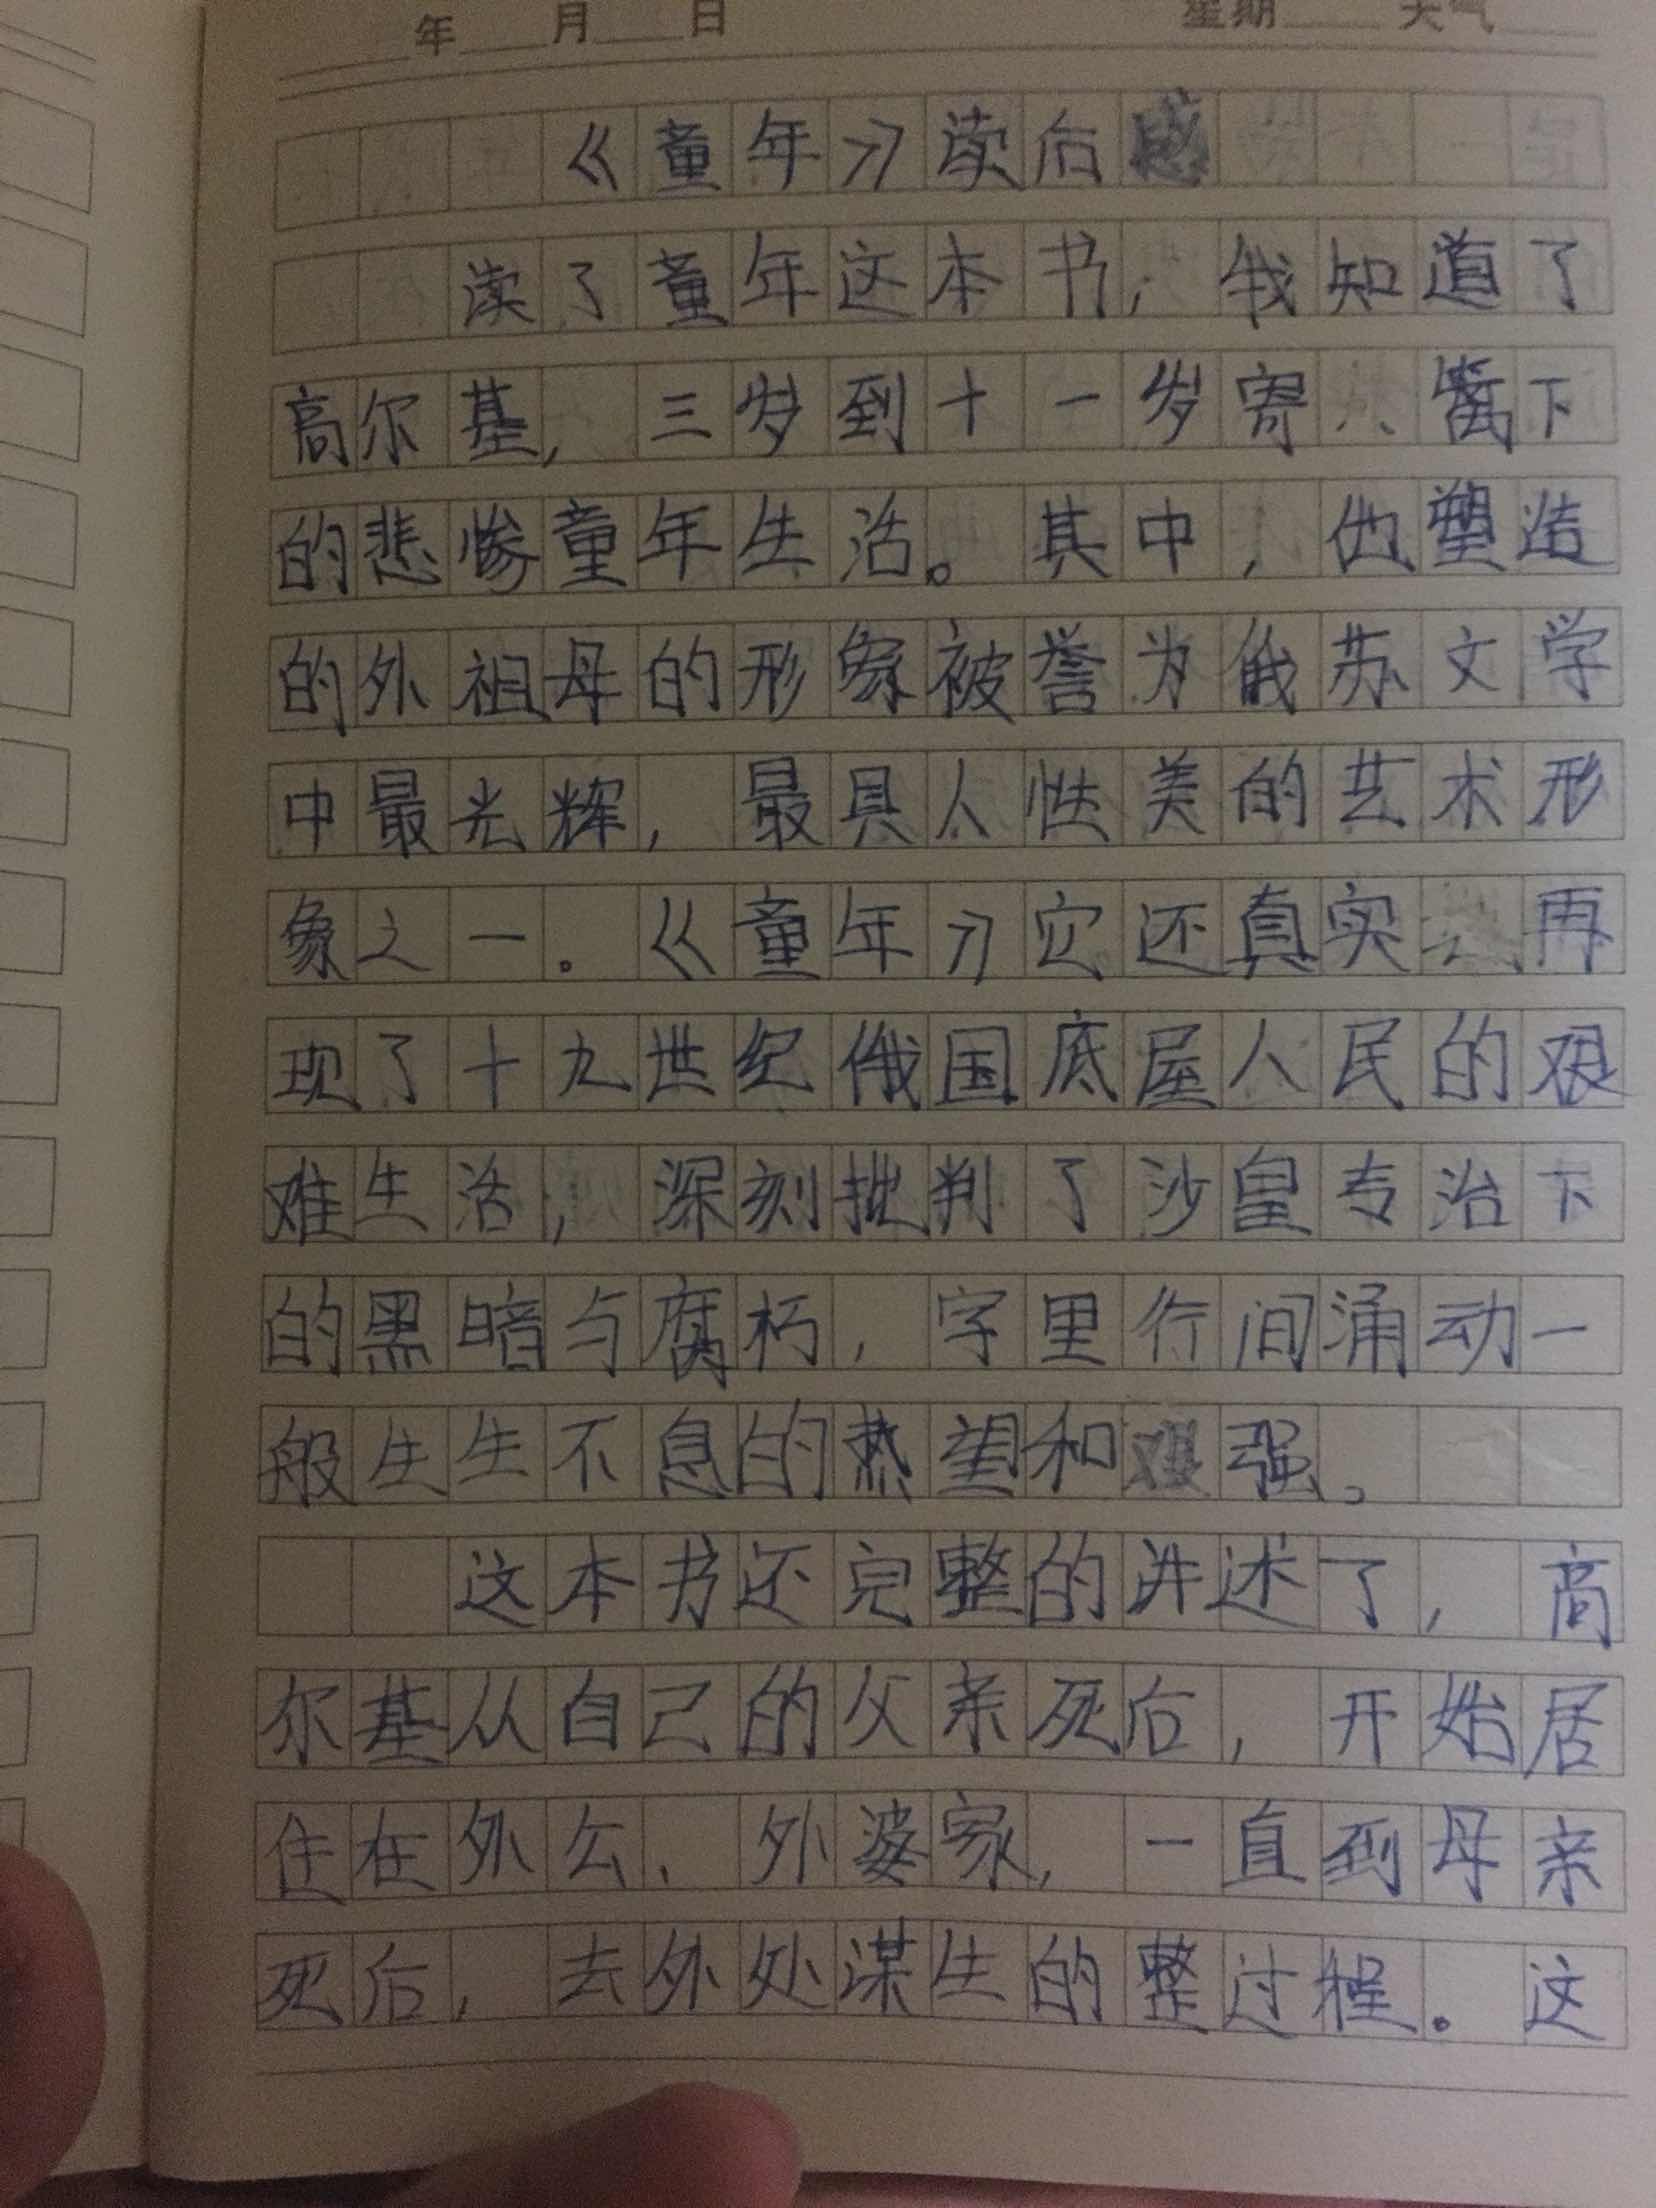 年 月 日 星期 天气
《童年》读后感
读了童年这本书，我知道了
高尔基，三岁到十一岁寄人篱下
的悲惨童年生活。其中，他塑造
的外祖母的形象被誉为俄苏文学
中最光辉，最具人性美的艺术形
象之一。《童年》它还真实 再
现了十九世纪俄国底层人民的艰
难生活，深刻批判了沙皇专治下
的黑暗与腐朽，字里行间涌动一
般生生不息的热望和 强。
这本书还完整的讲述了，高
尔基从自己的父亲死后，开始居
住在外公、外婆家，一直到母亲
死后，去外处谋生的整过程。这